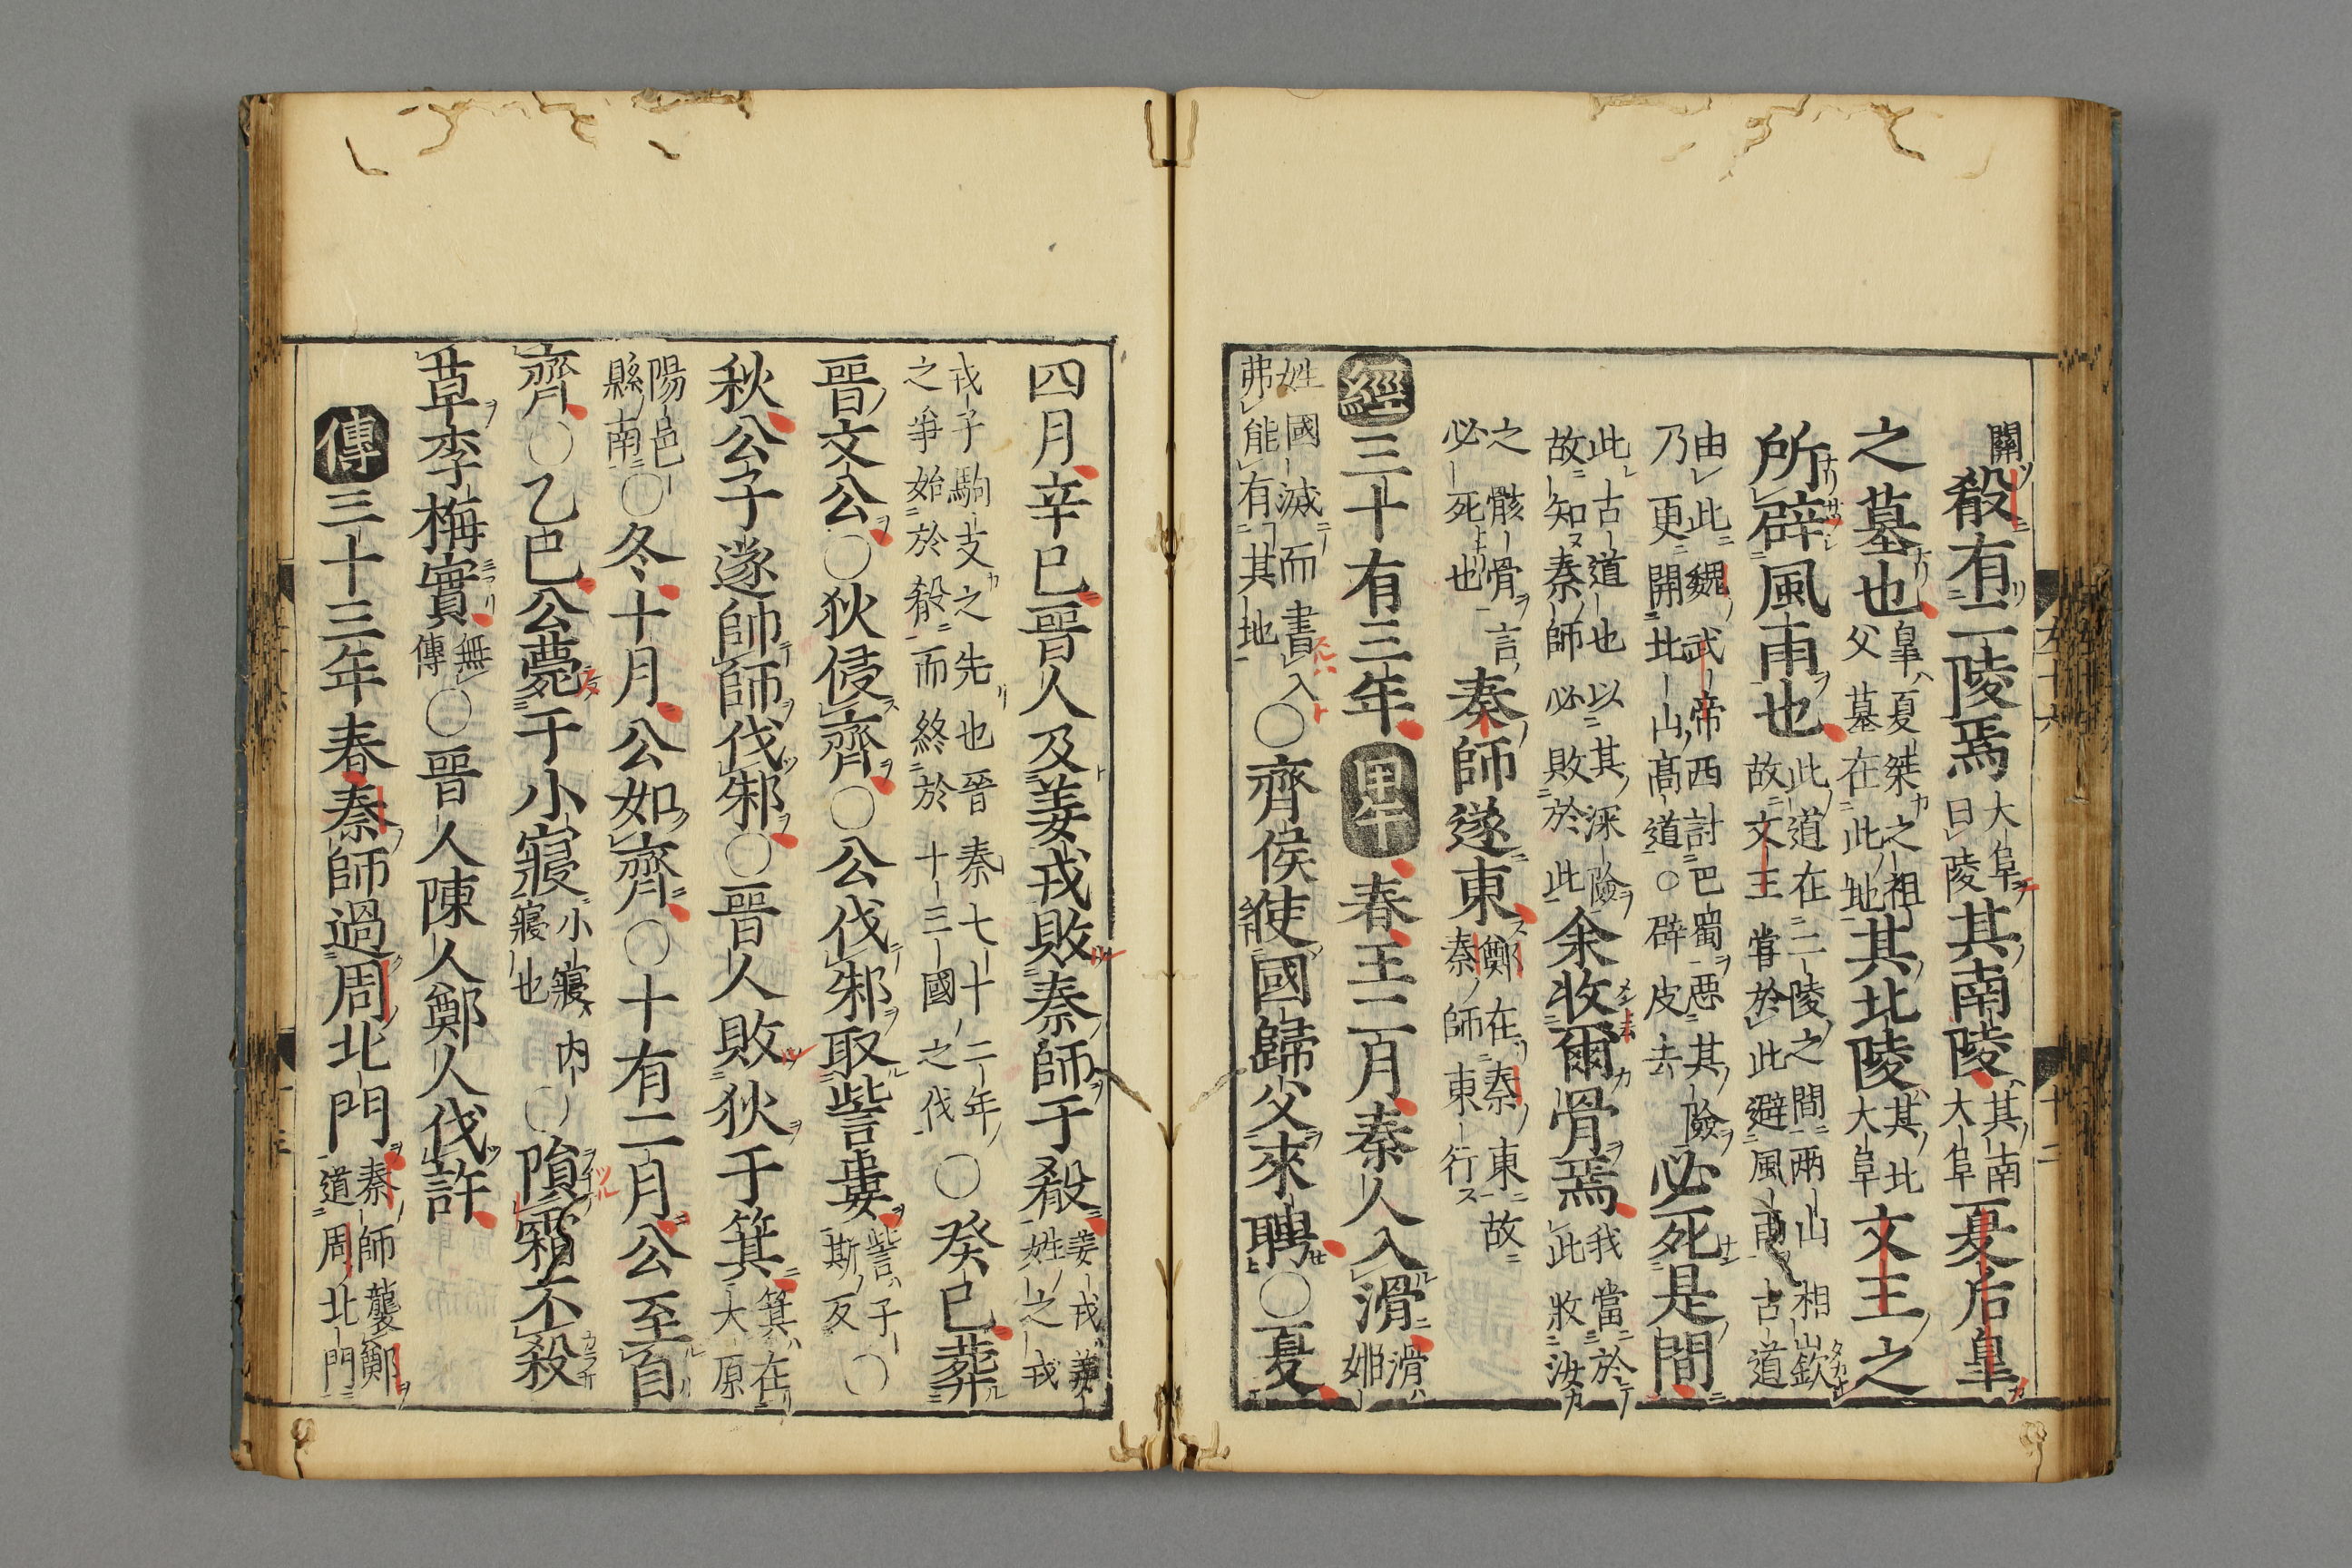 關殽有二陵焉大阜曰陵其南陵其南大阜夏后皇
之墓也皐夏桀之祖父墓在此地其北陵其北大阜文王之
所辟風雨也此道在二陵之間兩山相嶔故文王嘗於此避風雨古道
由此魏武帝西討巴蜀惡其險乃更開北山高道○辟皮去必死是間
此古道也以其深險故知秦師必敗於此余收爾骨焉我當於此收汝
之骸骨言必死也秦師遂東鄭在秦東故秦師東行
經三十有三年甲午春王二月秦人入滑滑姬
姓國滅而書入弗能有其地○齊侯使國歸父來聘○夏
四月辛巳晉人及姜戎敗秦師于殽姜戎姜姓之戎
戎子駒支之先也晉秦七十二年之爭始於殽而終於十三國之伐○癸巳葬
晉文公○狄侵齊○公伐邾取訾婁訾子斯反○
秋公子遂帥師伐邾○晉人敗狄于箕箕在大原
陽邑縣南○冬十月公如齊○十有二月公至自
齊○乙巳公薨于小寢小寢內寢也○隕霜不殺
草李梅實無傳○晉人陳人鄭人伐許
傳三十三年春秦師過周北門秦師襲鄭道周北門